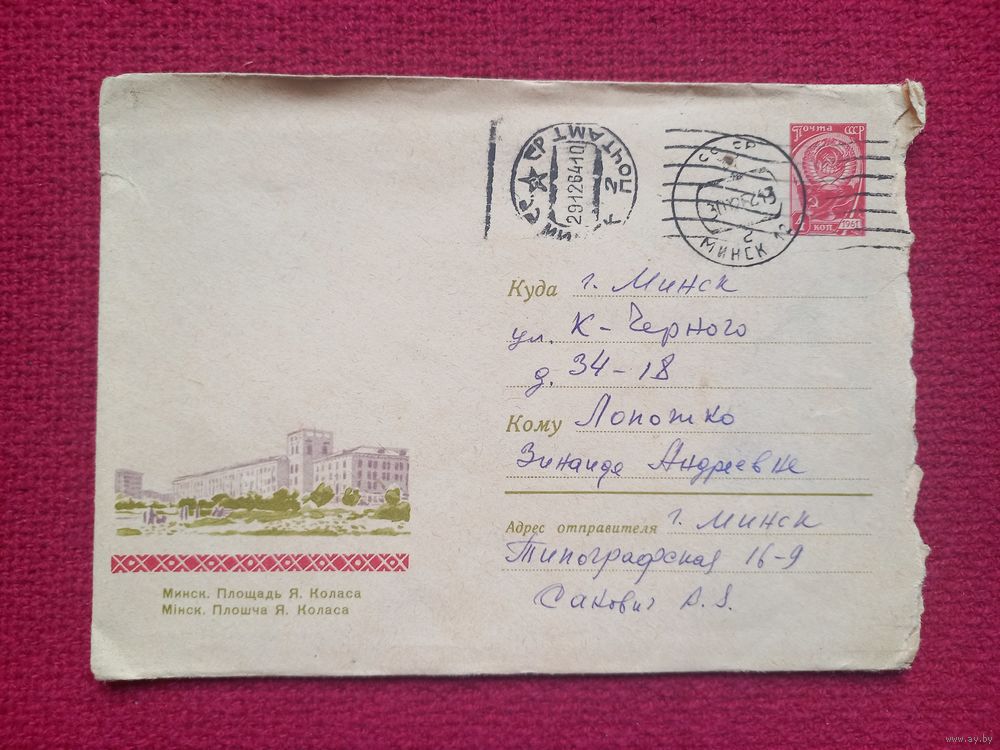 СССР
МИНСК
ПОЧТАМТ
29126410
СССР
МИНСК 12
2
Почта СССР
коп. 1961
Куда г. Минск
ул. К-Черного
д. 34-18
Кому Лопотко
Зинаиде Андреевне
Адрес отправителя г. Минск
Типографская 16-9
Сакович А. Я.
Минск. Площадь Я. Коласа
Мінск. Плошча Я. Коласа
www.ay.by